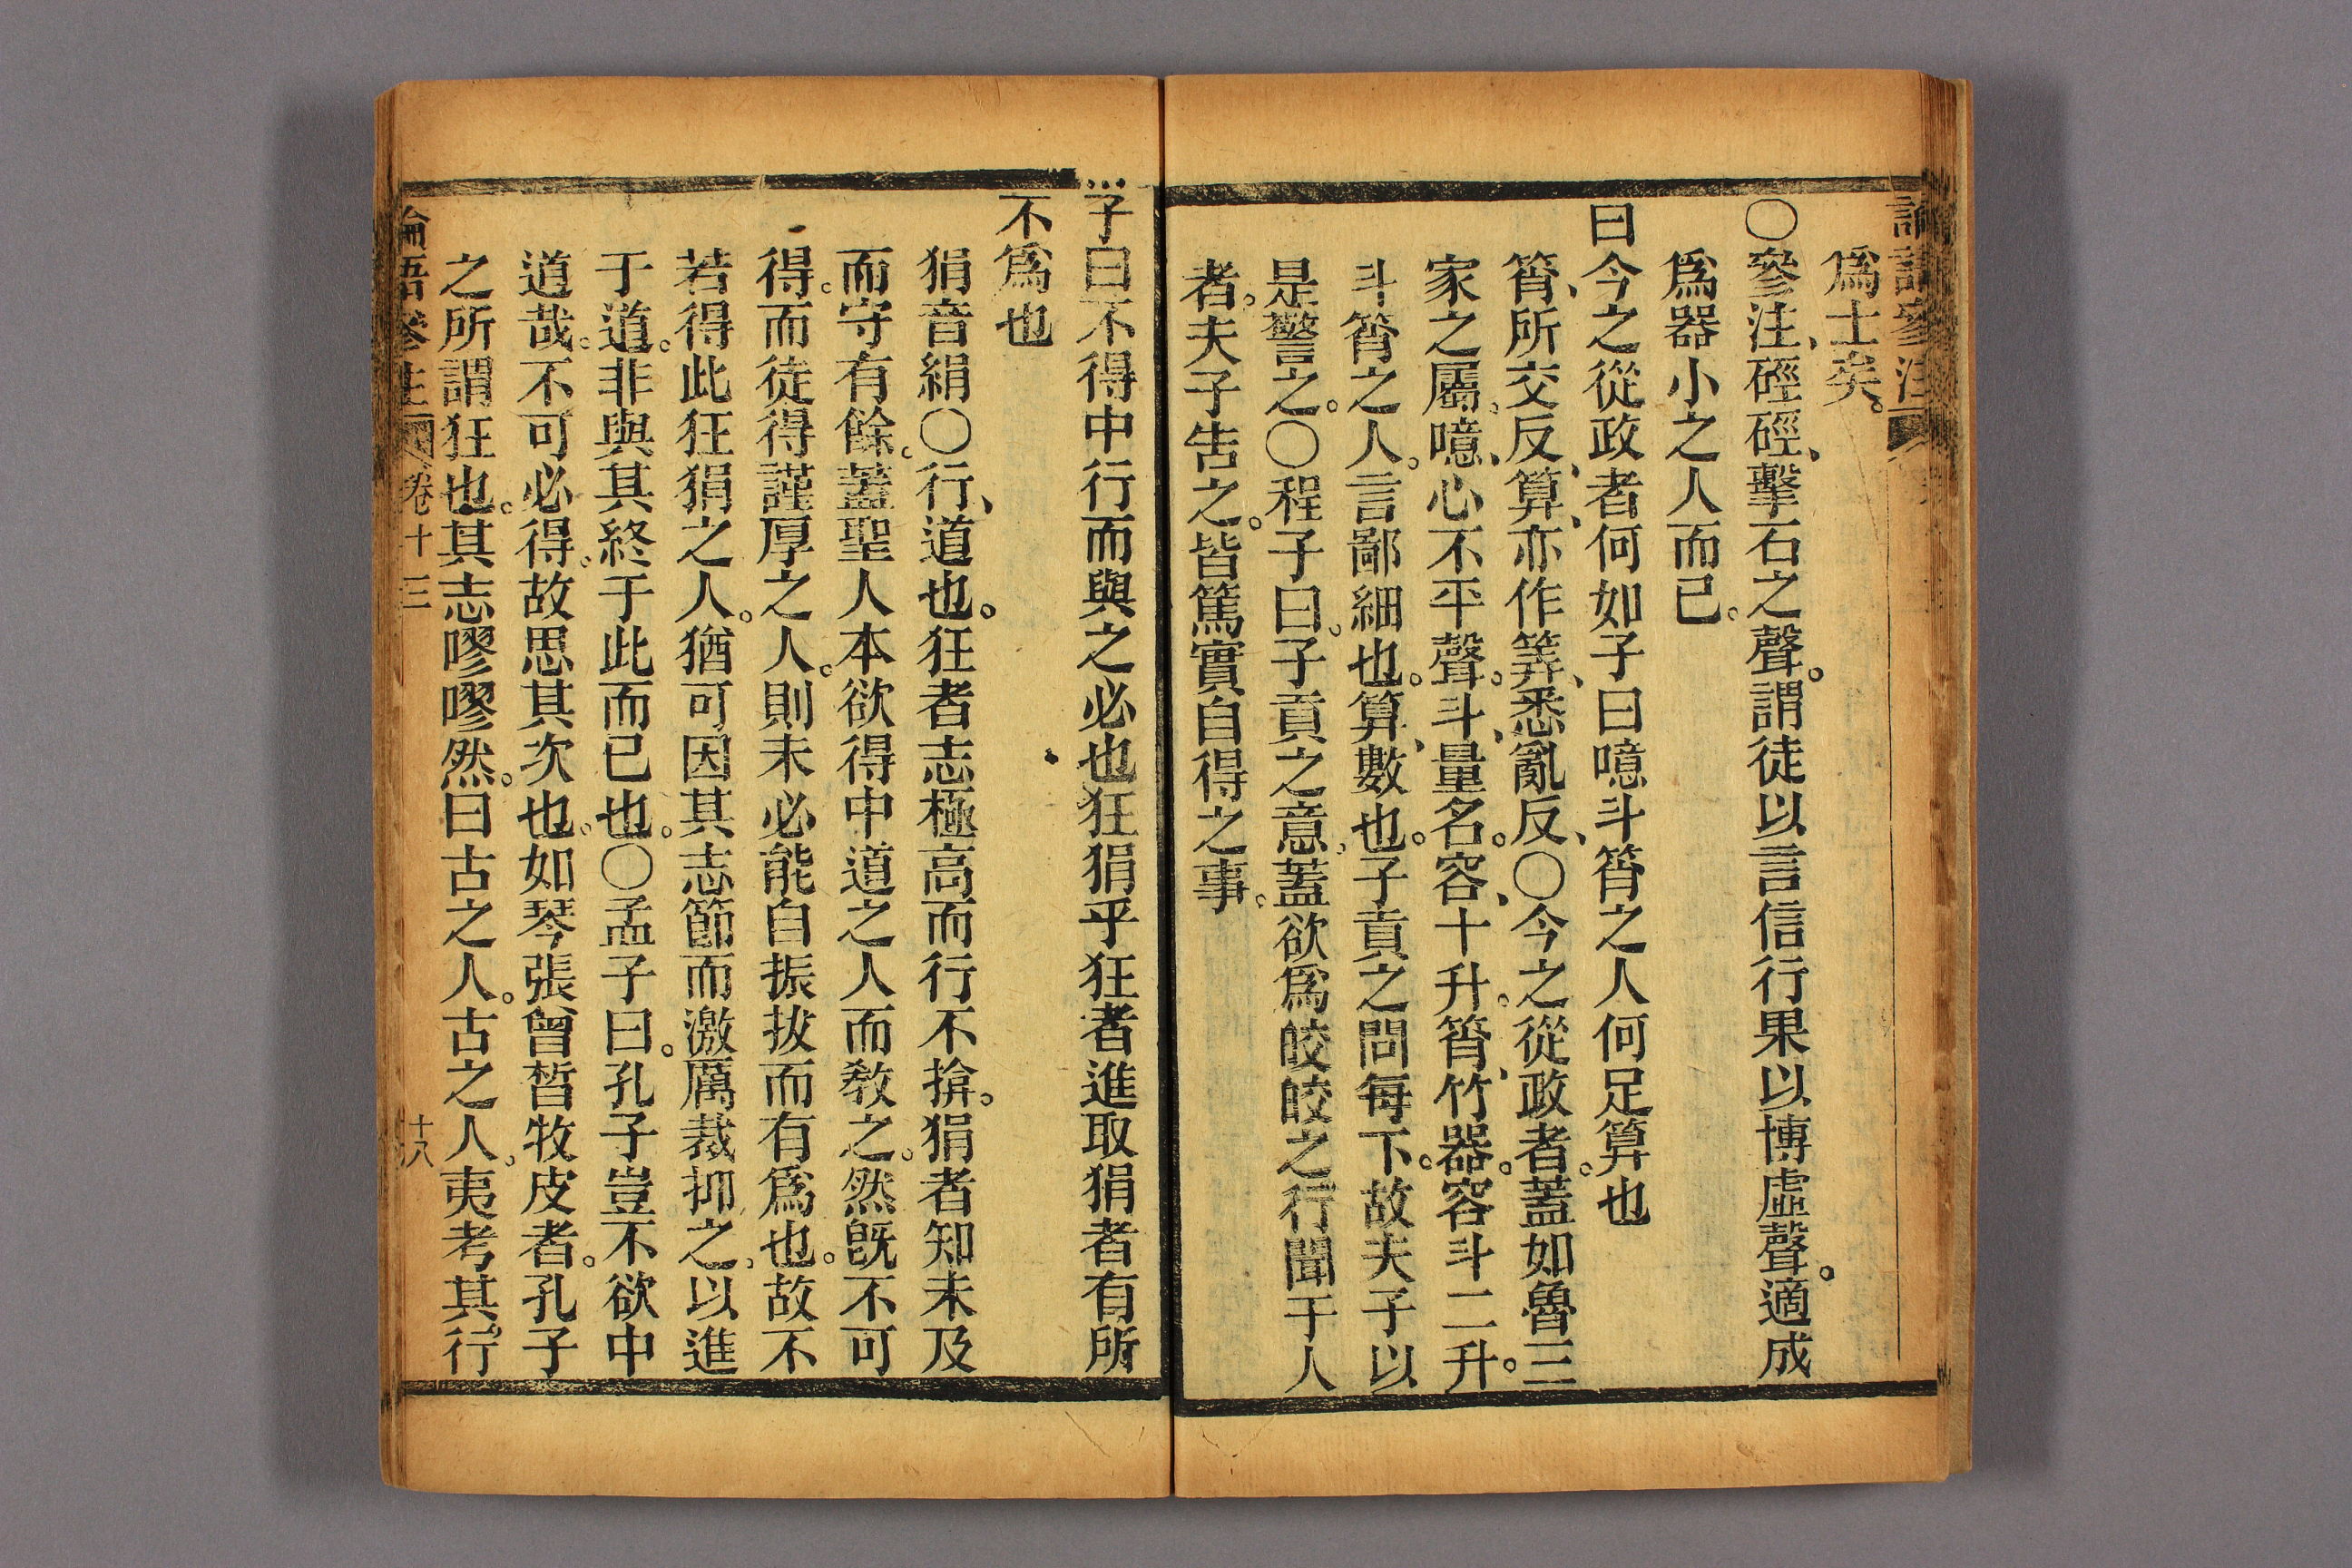 論語參注
爲士矣。
○參注、硜硜、擊石之聲。謂徒以言信行果以博虛聲。適成
爲器小之人而已。
曰今之從政者何如子曰噫斗筲之人何足算也
筲、所交反、算、亦作筭、悉亂反、○今之從政者。蓋如魯三
家之屬。噫、心不平聲。斗、量名。容、十升。筲、竹器。容斗二升。
斗筲之人。言鄙細也。算、數也。子貢之問每下。故夫子以
是警之。○程子曰。子貢之意、蓋欲爲皎皎之行聞于人
者。夫子告之。皆篤實自得之事。
子曰不得中行而與之必也狂狷乎狂者進取狷者有所
不爲也
狷音絹○行、道也。狂者志極高而行不揜。狷者知未及
而守有餘。蓋聖人本欲得中道之人而敎之。然旣不可
得。而徒得謹厚之人。則未必能自振拔而有爲也。故不
若得此狂狷之人。猶可因其志節而激厲裁抑之、以進
于道。非與其終于此而已也。○孟子曰。孔子豈不欲中
道哉。不可必得。故思其次也。如琴張、曾晳牧皮者。孔子
之所謂狂也。其志嘐嘐然。曰古之人。古之人。夷考其行
論語參注 卷十三 十八